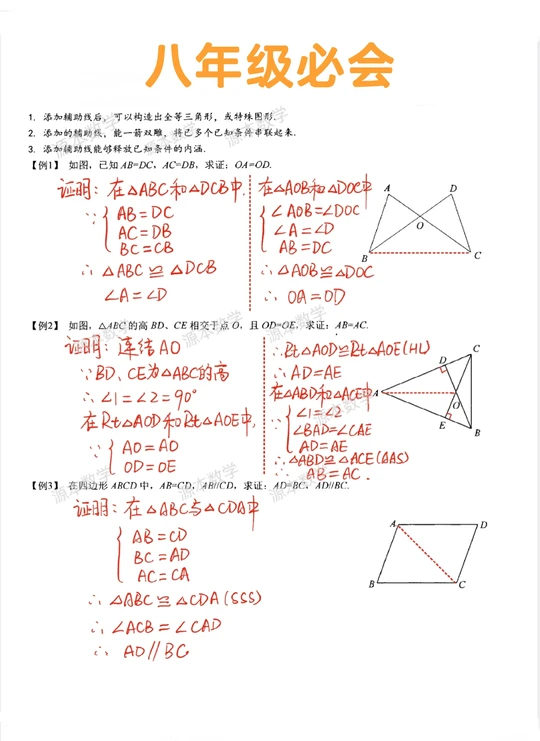 八年级必会
1. 添加辅助线后，可以构造出全等三角形，或特殊图形.
2. 添加的辅助线，能一箭双雕，将已多个已知条件串联起来.
3. 添加辅助线能够释放已知条件的内涵.
【例1】 如图，已知AB=DC，AC=DB，求证：OA=OD.
证明：在△ABC和△DCB中.
∵ { AB=DC
AC=DB
BC=CB
∴ △ABC≌△DCB
∠A=∠D
在△AOB和△DOC中
{ ∠AOB=∠DOC
∠A=∠D
AB=DC
∴ △AOB≌△DOC
∴ OA=OD
A
D
O
B
C
【例2】 如图，△ABC的高BD、CE相交于点O，且OD=OE，求证：AB=AC.
证明：连结AO
∵BD、CE为△ABC的高
∴∠1=∠2=90°
在Rt△AOD和Rt△AOE中，
∵ { AO=AO
OD=OE
∴Rt△AOD≌Rt△AOE(HL)
∴AD=AE
在△ABD和△ACE中
∵ { ∠1=∠2
∠BAD=∠CAE
AD=AE
∴△ABD≌△ACE(AAS)
∴ AB=AC.
C
D
A
O
E
B
【例3】 在四边形ABCD中，AB=CD，AB//CD，求证：AD=BC，AD//BC.
证明：在△ABC与△CDA中
{ AB=CD
BC=AD
AC=CA
∴ △ABC≌△CDA(SSS)
∴ ∠ACB=∠CAD
∴ AD//BC
A
D
B
C
源本数学
源本数学
源本数学
源本数学
源本数学
源本数学
源本数学